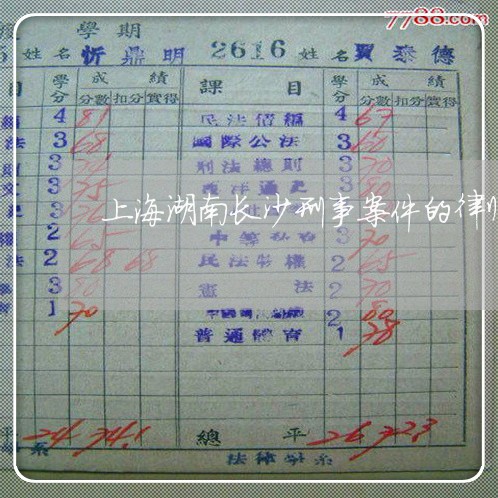 7788.com
學期
姓名 忻鼎明 2616 姓名 賈泰德
目 學分 成績 課目 學分 成績
分數 扣分 實得 分數 扣分 實得
4 81 民法債編 4 67
法 3 68 國際公法 3 60
3 刑法總則 3 70
3 75 西洋通史 3
上海湖南长沙刑事案件的律师
2 65 中等 3 70
法 2 68 68 民法物權 2 65
3 80 憲法 2 70
1 70 2 80
普通體育 1 78
平 24 74.1 總平 26 72.3
系 法律學系